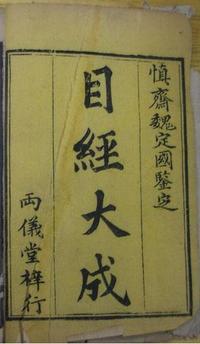 慎齋魏定國鑒定
目經大成
兩儀堂梓行